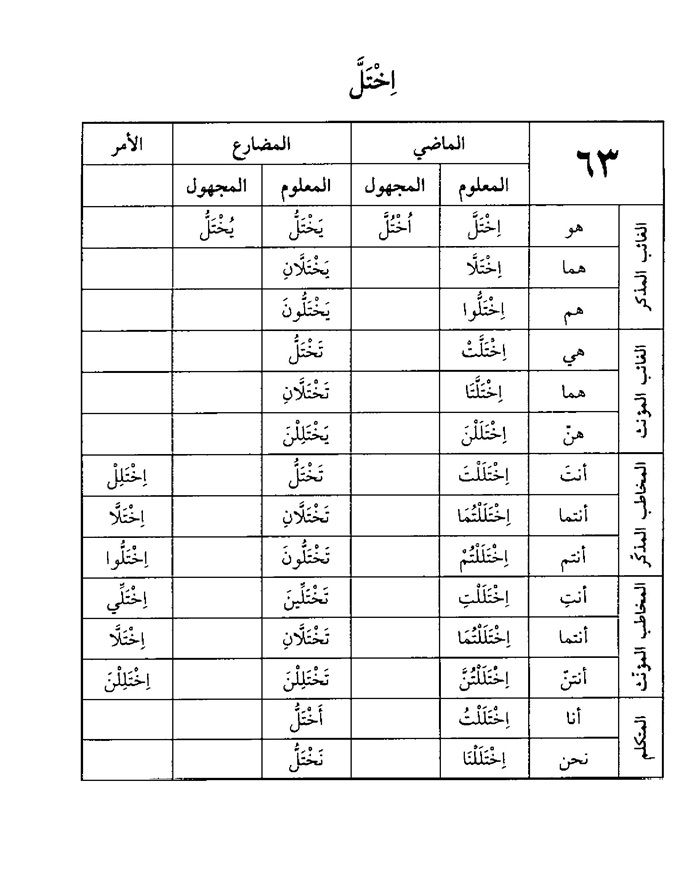 اِخْتَلَّ
٦٣ الماضي المضارع الأمر
المعلوم المجهول المعلوم المجهول
الغائب المذكر
هو اِخْتَلَّ اُخْتُلَّ يَخْتَلُّ يُخْتَلُّ
هما اِخْتَلَّا يَخْتَلَّانِ
هم اِخْتَلُّوا يَخْتَلُّونَ
الغائب المؤنث
هي اِخْتَلَّتْ تَخْتَلُّ
هما اِخْتَلَّتَا تَخْتَلَّانِ
هنّ اِخْتَلَلْنَ يَخْتَلِلْنَ
المخاطب المذكّر
أنتَ اِخْتَلَلْتَ تَخْتَلُّ اِخْتَلِلْ
أنتما اِخْتَلَلْتُمَا تَخْتَلَّانِ اِخْتَلَّا
أنتم اِخْتَلَلْتُمْ تَخْتَلُّونَ اِخْتَلُّوا
المخاطب المؤنّث
أنتِ اِخْتَلَلْتِ تَخْتَلِّينَ اِخْتَلِّي
أنتما اِخْتَلَلْتُمَا تَخْتَلَّانِ اِخْتَلَّا
أنتنّ اِخْتَلَلْتُنَّ تَخْتَلِلْنَ اِخْتَلِلْنَ
المتكلم
أنا اِخْتَلَلْتُ أَخْتَلُّ
نحن اِخْتَلَلْنَا نَخْتَلُّ